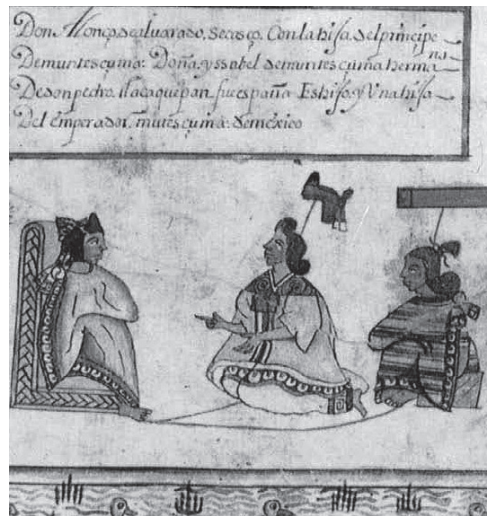 Don Alonço, de aluarado, Secasço, Con la hisa, del principe
De muntesçuma: Doña, yssabel de muntesçuma herma na
De don pedro, tlacaquepan fue españa Es hijo, y Vna hisa
Del emperador, mutesçuma de mexico